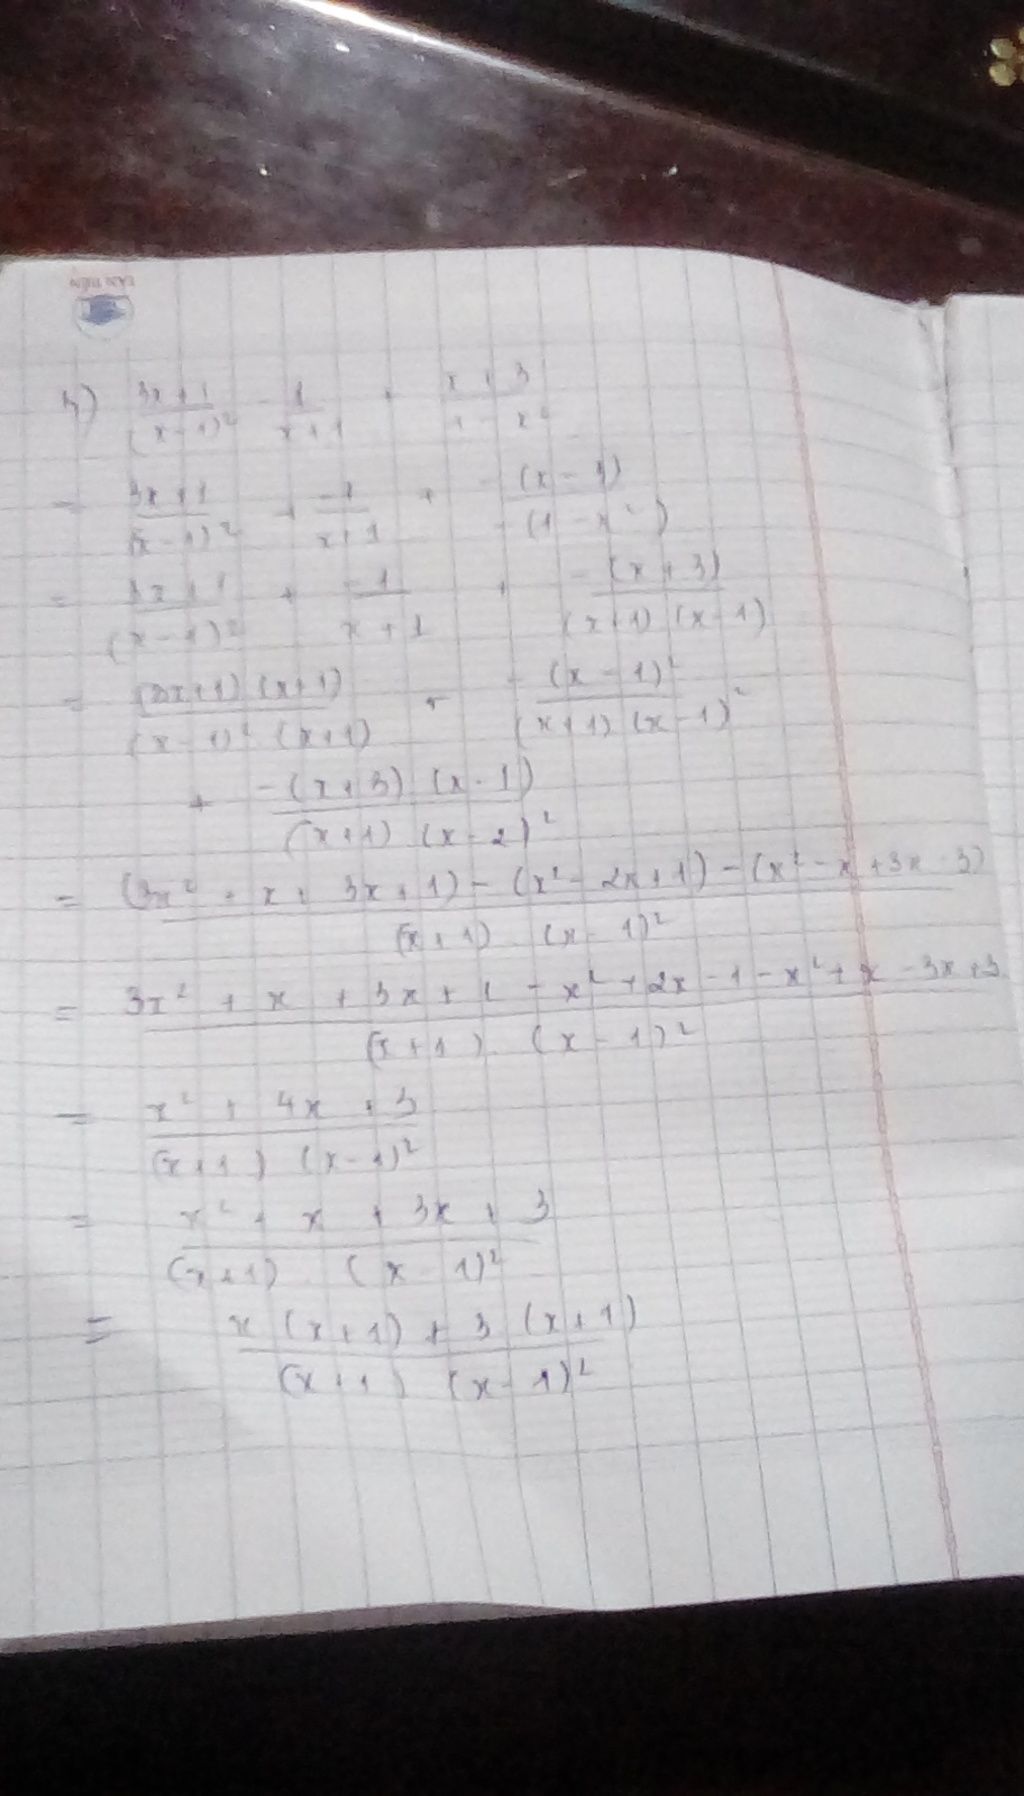 TÂN TIẾN
b) (3x + 1)/(x - 1)² - 1/(x + 1) + (x + 3)/(1 - x²)
= (3x + 1)/(x - 1)² + (-1)/(x + 1) + -(x - 3)/-(1 - x²)
= (3x + 1)/(x - 1)² + (-1)/(x + 1) + -(x + 3)/(x + 1)(x - 1)
= (3x + 1)(x + 1)/(x - 1)²(x + 1) + -(x - 1)²/(x + 1)(x - 1)²
+ -(x + 3)(x - 1)/(x + 1)(x - 2)²
= (3x² + x + 3x + 1) - (x² - 2x + 1) - (x² - x + 3x - 3)/(x + 1)(x - 1)²
= 3x² + x + 3x + 1 - x² + 2x - 1 - x² + x - 3x + 3/(x + 1)(x - 1)²
= x² + 4x + 3/(x + 1)(x - 1)²
= x² + x + 3x + 3/(x + 1)(x - 1)²
= x(x + 1) + 3(x + 1)/(x + 1)(x - 1)²